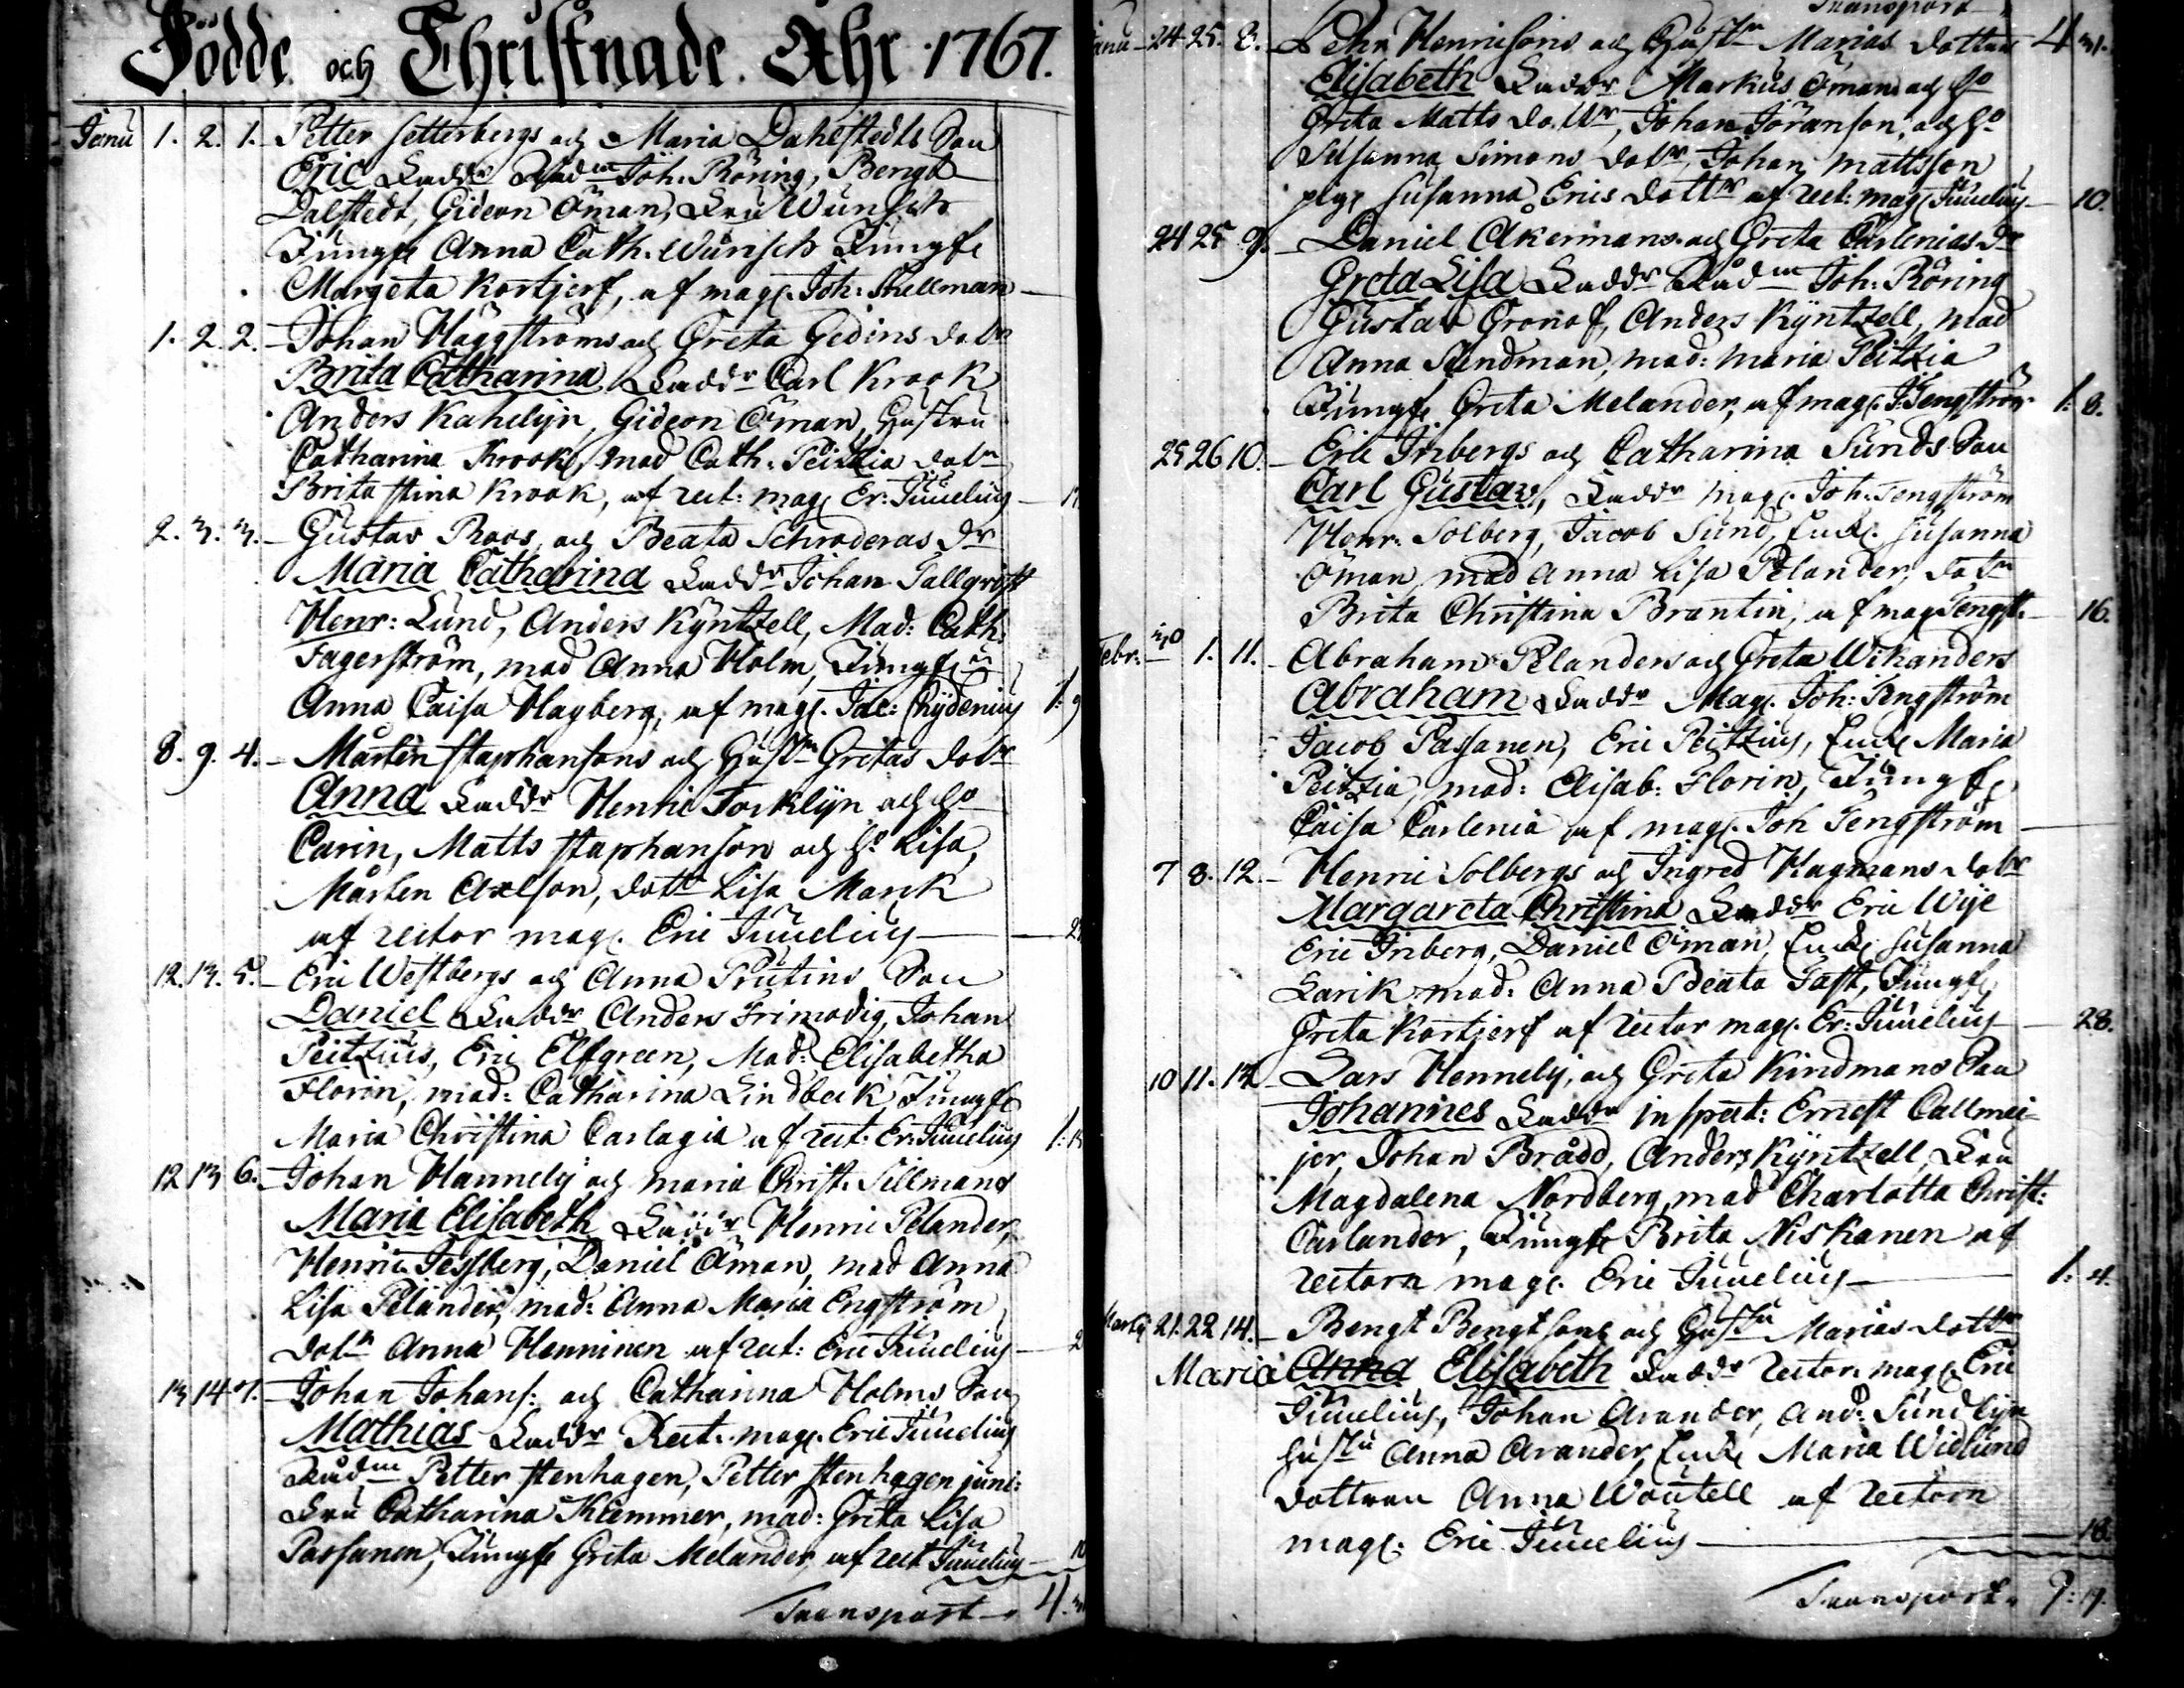 Födde och Christnade Åhr 1767.
Janu 1. 2. 1. Petter Setterbergs och Maria Dahlstedts Son
Eric Faddr Rådm Joh. Röring, Bengt
Dalstedt, Gideon Öman, Fru Wunsch
Jungfr Anna Cath. Wünsch Jungfr
Margeta Kortjerf, af mag. Joh: Snellman
1. 2. 2. Johan Häggströms och Greta Gedins dotr
Brita Catharina Faddr Carl Krook
Anders Kahelijn, Gideon Öman, Hustru
Catharina Krook, mad Cath. Peitzia dotr
Brita Stina Krook, af rect: mag Er: Juvelius
2. 3. 3. Gustav Roos, och Beata Schroderas dr
Maria Catharina Faddr Johan Tallqvist
Henr: Lund, Anders Kÿntzell, Mad: Cath.
Fagerström, mad Anna Holm, Jungfru
Anna Caisa Hagberg, af mag. Jac: Chydenius 1: 9
8. 9. 4. Mårten Staphansons och Hustr Gretas dotr
Anna Faddr Henric Torklijn och Ho
Carin, Matts Staphanson och Ho Lisa,
Mårten Axelson, dottr Lisa Marck
af rector mag. Eric Juvelius
12. 13. 5. Eric Westbergs och Anna Prutins Son
Daniel Faddr Anders Frimodig, Johan
Peitzius, Eric Elfgreen, Mad: Elisabetha
Florin, mad: Catharina Lindbeck Jungfr
Maria Christina Carlagia af rect. Er: Juvelius
12 13 6. Johan Hannelij och Maria Christ. Tillmans
Maria Elisabeth Faddr Henric Pelander,
Henric Fessberg, Daniel Öman, mad Anna
Lisa Pelander, mad: Anna Maria Engström
dotr Anna Henninen af rect: Eric Juvelius
13 14 7. Johan Johans: och Catharina Holms Son
Mathias Faddr Rect. mag. Eric Juvelius
Rådm Petter Stenhagen, Petter Stenhagen juni:
Fru Catharina Klemmer, mad: Greta Lisa
Passanen, Jungfr Greta Melander, af rect Juvelius
Transport 4.
Transport
Janu 24 25. 8. Henricsons och Hustr Marias dotter 4 31.
Elisabeth Faddr Markus Öman och Ho
Greta Matts dottr, Johan Jöranson, och Ho
Susanna Simons dotr, Johan Mattsson
pig Susanna Erics dottr af rect: mag Juvelius 10.
24 25 9. Daniel Åkermans och Greta Carlenias dr
Greta Lisa Faddr Rådm Joh: Röring
Gustav Gronof, Anders Kÿntzell, mad
Anna Sundman, mad: Maria Peitzia
Jungfr Greta Melander, af mag. J: Tengström 1: 8.
25 26 10. Eric Inbergs och Catharina Sunds Son
Carl Gustav, Faddr mag. Joh: Tengström
Henr. Solberg, Jacob Sund, Enck. Susanna
Öman mad Anna Lisa Pelander, dotr
Brita Christina Brantin, af mag Tengst. 16.
Febr: 1. 11. Abraham Pelanders och Greta Wikanders
Abraham Faddr Mag. Joh: Tengström
Jacob Passanen, Eric Peitzius, Enck Maria
Peitzia, mad: Elisab: Florin, Jungfr
Caisa Carlenia af mag. Joh Tengström
7 8. 12. Henric Solbergs och Ingred Hagmans dotr
Margareta Christina Faddr Eric Wije
Eric Inberg, Daniel Öman, Enck. Susanna
Larik mad: Anna Beata Fast, Jungfr
Greta Kortjerf af rector mag. Er: Juvelius 28.
10 11. 13 Lars Hennely, och Greta Kindmans Son
Johannes Faddr inspect: Ernest Callmei-
jer, Johan Brådd, Anders Kÿntzell, Fru
Magdalena Nordberg, mad Charlotta Christ:
Carlander, Jungfr Brita Niskanen af
rectorn mag. Eric Juvelius 1: 4.
Marty 21. 22 14. Bengt Bengtsons och Hustru Marias dottr
Maria Anna Elisabeth Faddr rector mag. Eric
Juvelius, Johan Arander, And: Sundlijn
Hustu Anna Arander, Enck Maria Widlund
dottren Anna Woutell af rectorn
mag. Eric Juvelius 18.
Transport 9: 19.